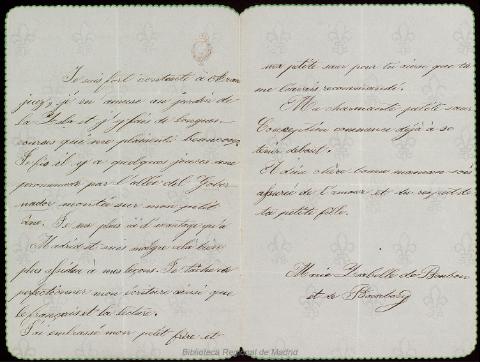 Je suis fort contente à Aran
juez, j'ai en amuse au jardin de
la Isla et j'y fais de longues
courses que me plaisent beaucoup.
Je fis il y a quelques jours une
promenade par l'allée del Gober
nador montée sur mon petit
âne. Je me plais ici d'avantage qu'à
Madrid et suis malgré cela bien
plus assidue à mes leçons. Je tâche de
perfectionner mon écriture ainsi que
le français et la lecture.
J'ai embrassé mon petit frère et
ma petite sœur pour toi ainsi que tu
me l'avais recommandé.
Ma charmante petite sœur
Conception commence déjà à se
tenir debout.
Adieu chère bonne maman sois
assurée de l'amour et du respect de
ta petite fille.
Marie Isabelle de Bourbon
et de Bourbon
Biblioteca Regional de Madrid